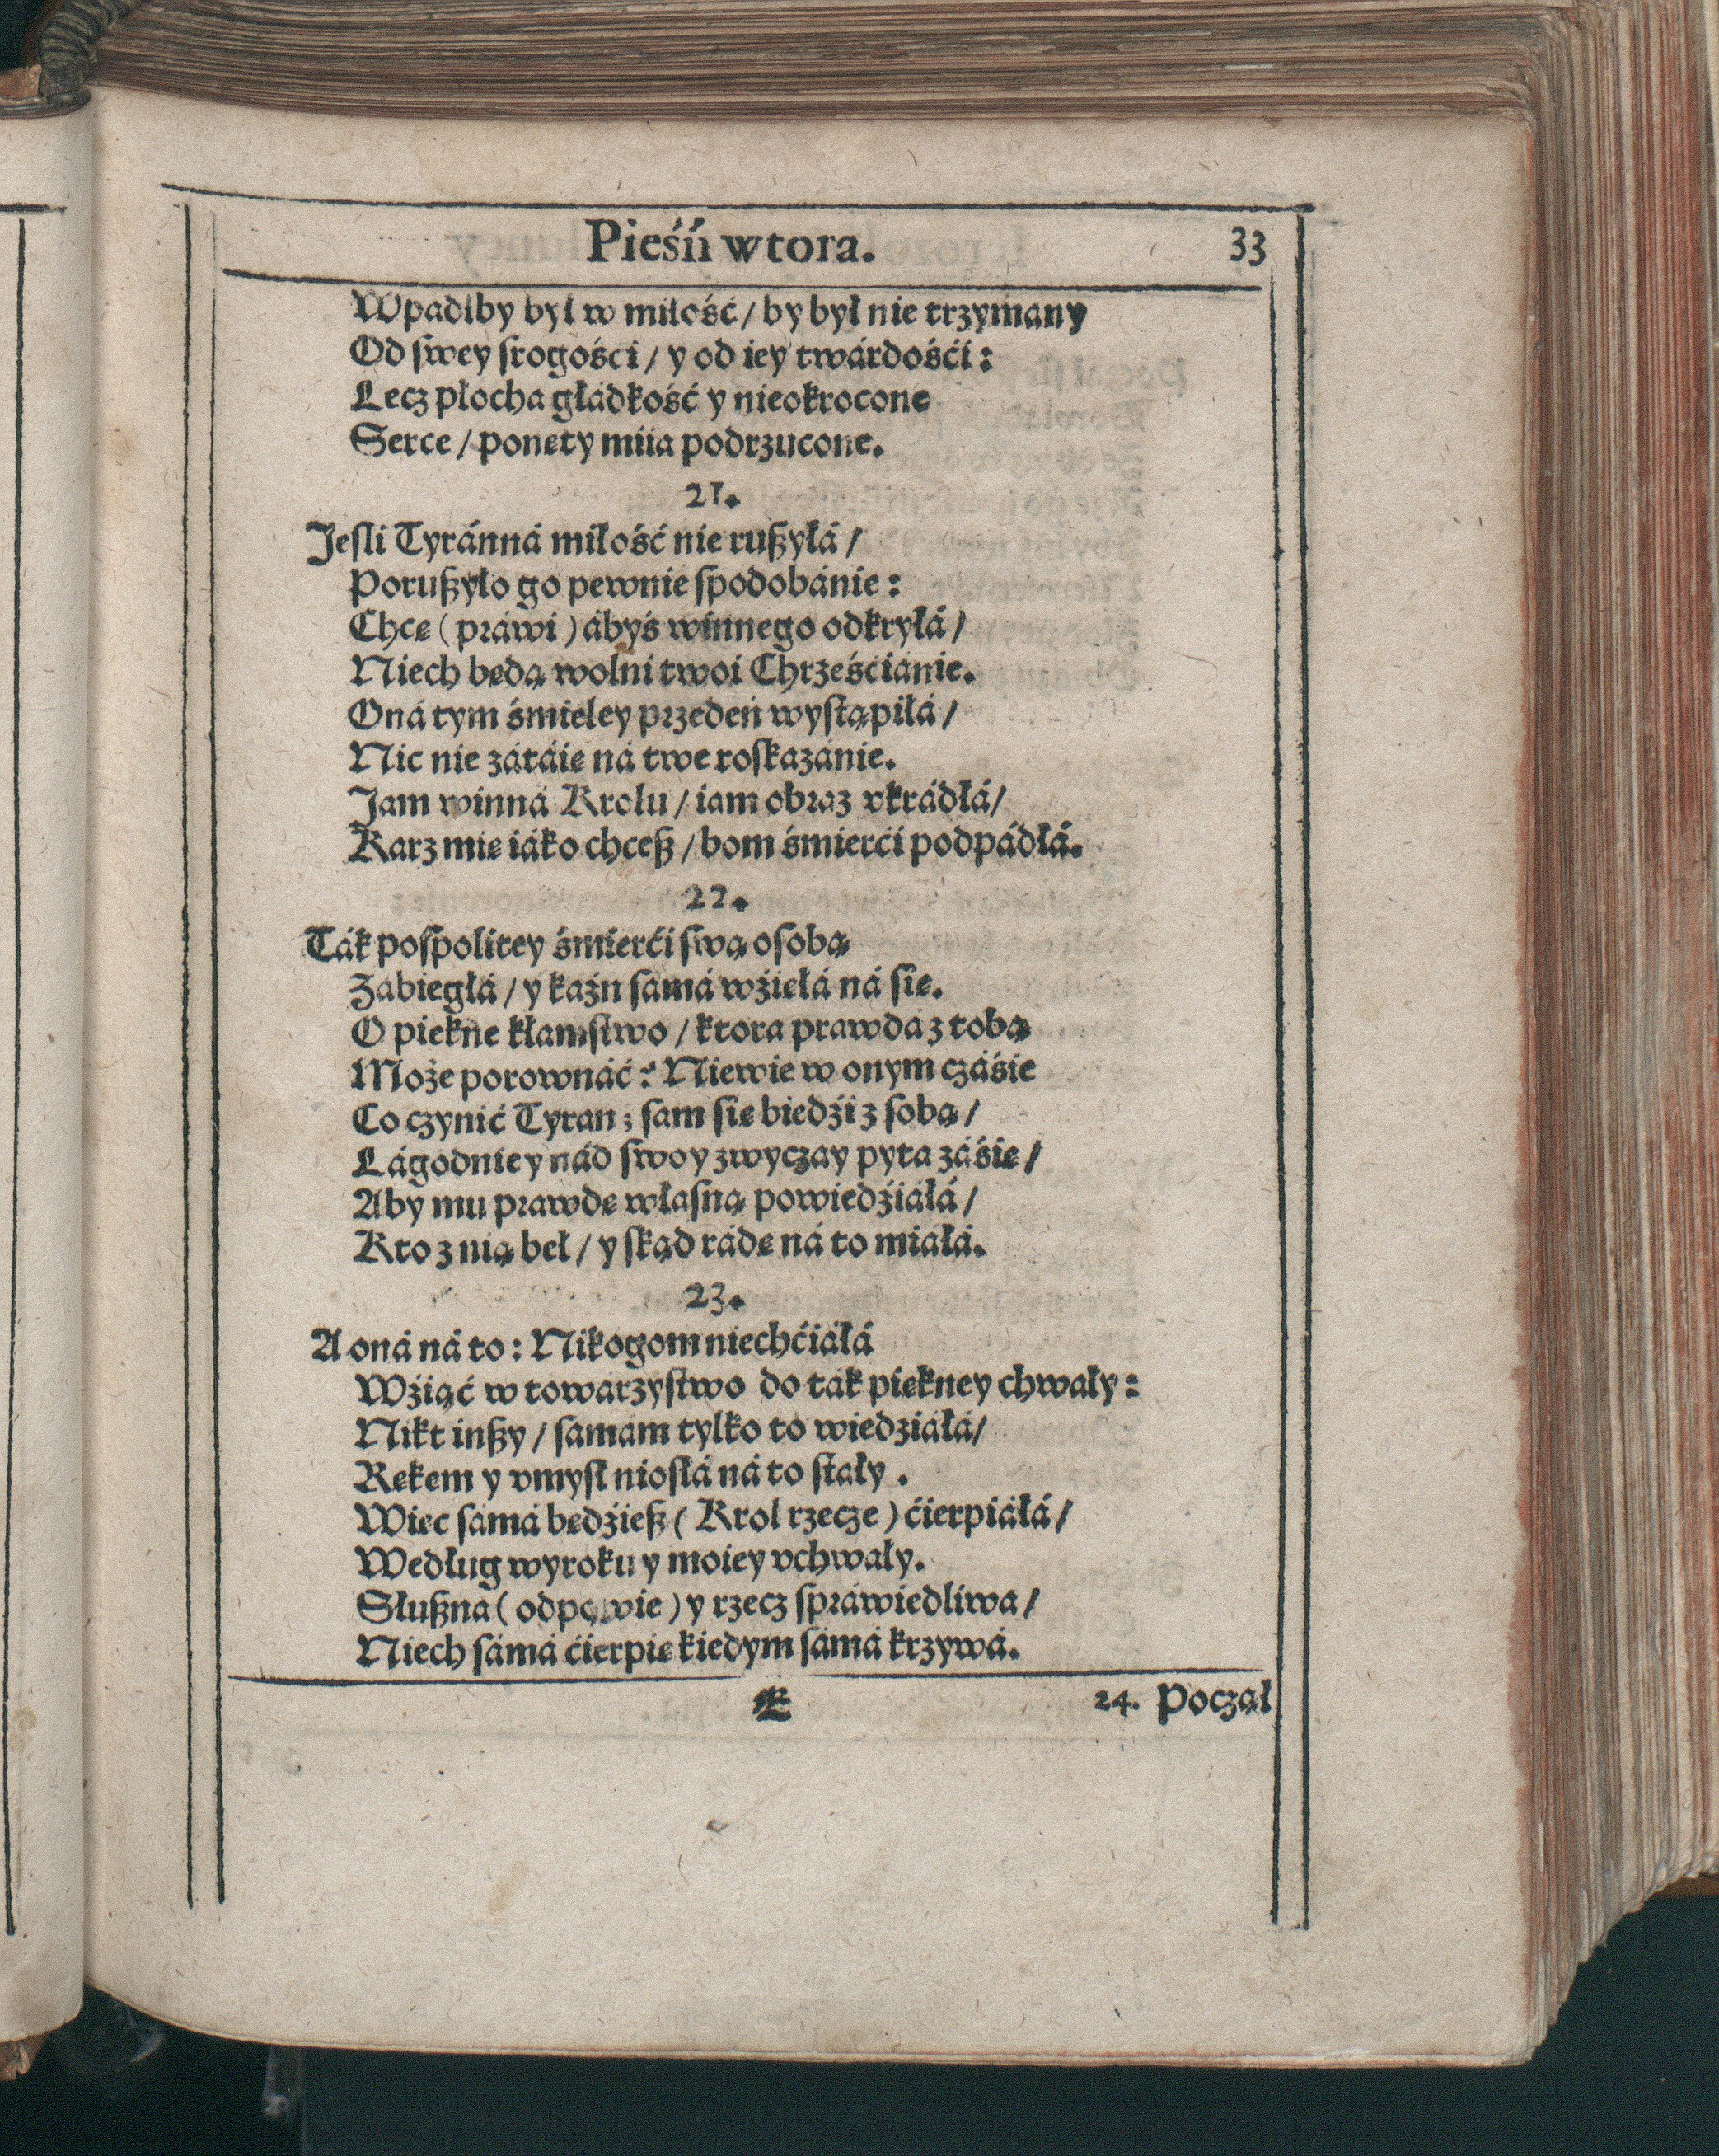 Pieśń wtora. 33
Wpadlby był w miłość / by był nie trzymany
Od ſwey ſrogości / y od iey twárdośći:
Lecz płocha głádkość y nieokrocone
Serce / ponęty miia podrzucone.
21.
Jeſli Tyránná miłość nie rußyłá /
Porußyło go pewnie ſpodobánie:
Chcę (práwi) ábyś winnego odkryłá /
Niech będą wolni twoi Chrześcianie.
Oná tym śmieley przedeń wyſtąpiłá /
Nic nie zátáię ná twe roſkazánie.
Jam winná Krolu / iam obraz vkrádłá /
Karz mię iáko chceß / bom śmierći podpádłá.
22.
Ták poſpolitey śmierći ſwą oſobą
Zabiegłá / y kaźn ſámá wźięłá ná ſię.
O piękne kłamſtwo / ktora prawda z tobą
Może porownáć? Niewie w onym czáśie
Co czynić Tyran; ſam ſię biedźi z ſobą /
Lágodniey nád ſwoy zwyczay pyta záśię /
Aby mu prawdę właſną powiedźiáłá /
Kto z nią beł / y ſkąd rádę ná to miáłá.
23.
A oná ná to: Nikogom niechćiáłá
Wźiąć w towarzyſtwo do ták piękney chwały:
Nikt inßy / ſamam tylko to wiedziáłá /
Rękem y vmyſł nioſłá ná to ſtały.
Więc ſámá będźieß (Krol rzecze) ćierpiáłá /
Według wyroku y moiey vchwały.
Słußna (odpowie) y rzecz ſpráwiedliwa /
Niech ſámá ćierpię kiedym ſámá krzywá.
E 24. Począł